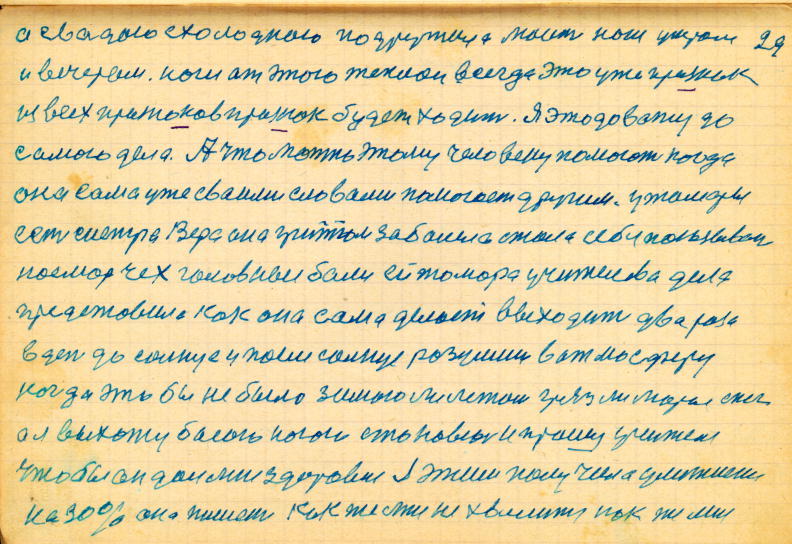 а свадою схолодною подружила моит ноги утром 29
и вечером. ноги от этого теплои всегда это уже признак
из всех признаков признак будет ходит. Я этодовожу до
самого дела. А что можть этому человеку помогот когда
она сама уже сваими словами помогает другим. у тамары
сест сиетра Вера она гриппом заболела стала себя
головные боли ей томара учителева дела
предстовила как она сама делает ввыходит два раза
вден до солнце и посли солнце разумии ватмосферу
когда это бы не было зимою ли летом грязли мороз снег
а я выхожу басого ногои становюс и прошу учителя
чтобы он дал мни здоровия Я этим получила
на 30% она пишет как же мни не хвалит как же мни